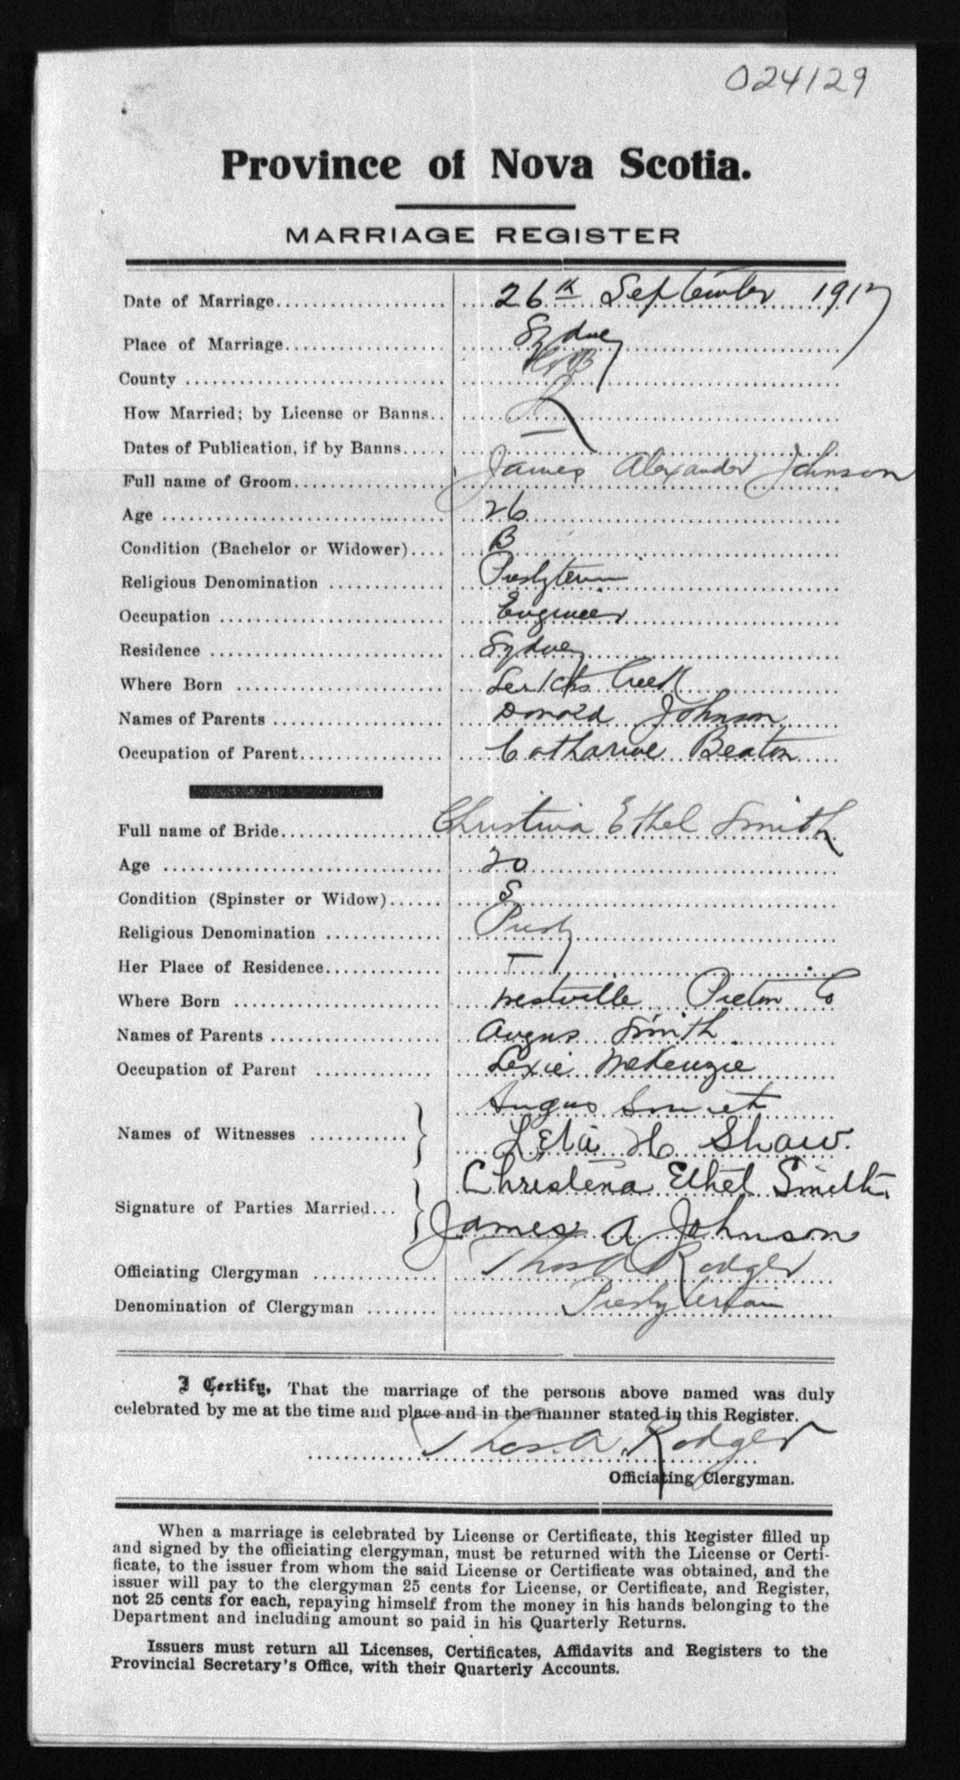 024129
Province of Nova Scotia.
MARRIAGE REGISTER
Date of Marriage 26th September 1917
Place of Marriage Sydney
County CB
How Married; by License or Banns L
Dates of Publication, if by Banns —
Full name of Groom James Alexander Johnson
Age 26
Condition (Bachelor or Widower) B
Religious Denomination Presbyterian
Occupation Engineer
Residence Sydney
Where Born Creek
Names of Parents Donald Johnson
Occupation of Parent Catharine Beaton
Full name of Bride Christina Ethel Smith
Age 20
Condition (Spinster or Widow) S
Religious Denomination Presby
Her Place of Residence —
Where Born Westville Pictou Co
Names of Parents Angus Smith
Occupation of Parent Lexie McKenzie
Angus Smith
Names of Witnesses Lela H Shaw.
Christena Ethel Smith.
Signature of Parties Married James A Johnson
Officiating Clergyman Thos A Rodger
Denomination of Clergyman Presbyterian
I Certify, That the marriage of the persons above named was duly
celebrated by me at the time and place and in the manner stated in this Register.
Thos. A. Rodger
Officiating Clergyman.
When a marriage is celebrated by License or Certificate, this Register filled up
and signed by the officiating clergyman, must be returned with the License or Certi-
ficate, to the issuer from whom the said License or Certificate was obtained, and the
issuer will pay to the clergyman 25 cents for License, or Certificate, and Register,
not 25 cents for each, repaying himself from the money in his hands belonging to the
Department and including amount so paid in his Quarterly Returns.
Issuers must return all Licenses, Certificates, Affidavits and Registers to the
Provincial Secretary's Office, with their Quarterly Accounts.